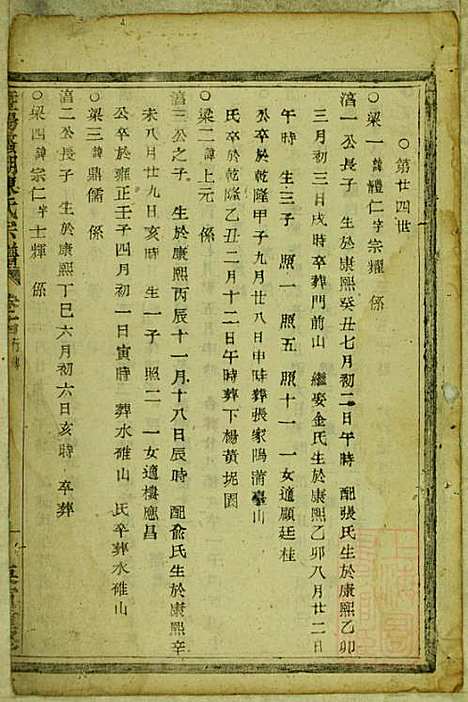 ○第廿四世
○梁一諱體仁字宗耀係
湻一公長子 生於康熙癸丑七月初二日午時 配張氏生於康熙乙卯
三月初三日戌時卒葬門前山 繼娶金氏生於康熙乙卯八月廿二日
午時 生三子 照一 照五 照十一 一女適顧廷桂
公卒於乾隆甲子九月廿八日申時葬張家陽蒲臺山
氏卒於乾隆乙丑二月十二日午時葬下楊黃坭園
○梁二諱上元 係
湻三公之子 生於康熙丙辰十一月十八日辰時 配俞氏生於康熙辛
未八月廿九日亥時 生一子 照二 一女適樓應昌
公卒於雍正壬子四月初一日寅時 葬水碓山 氏卒葬水碓山
○梁三諱鼎儒係
湻二公長子 生於康熙丁巳六月初六日亥時 卒葬
○梁四諱宗仁字士輝 係
陽 湖 氏宗譜 卷